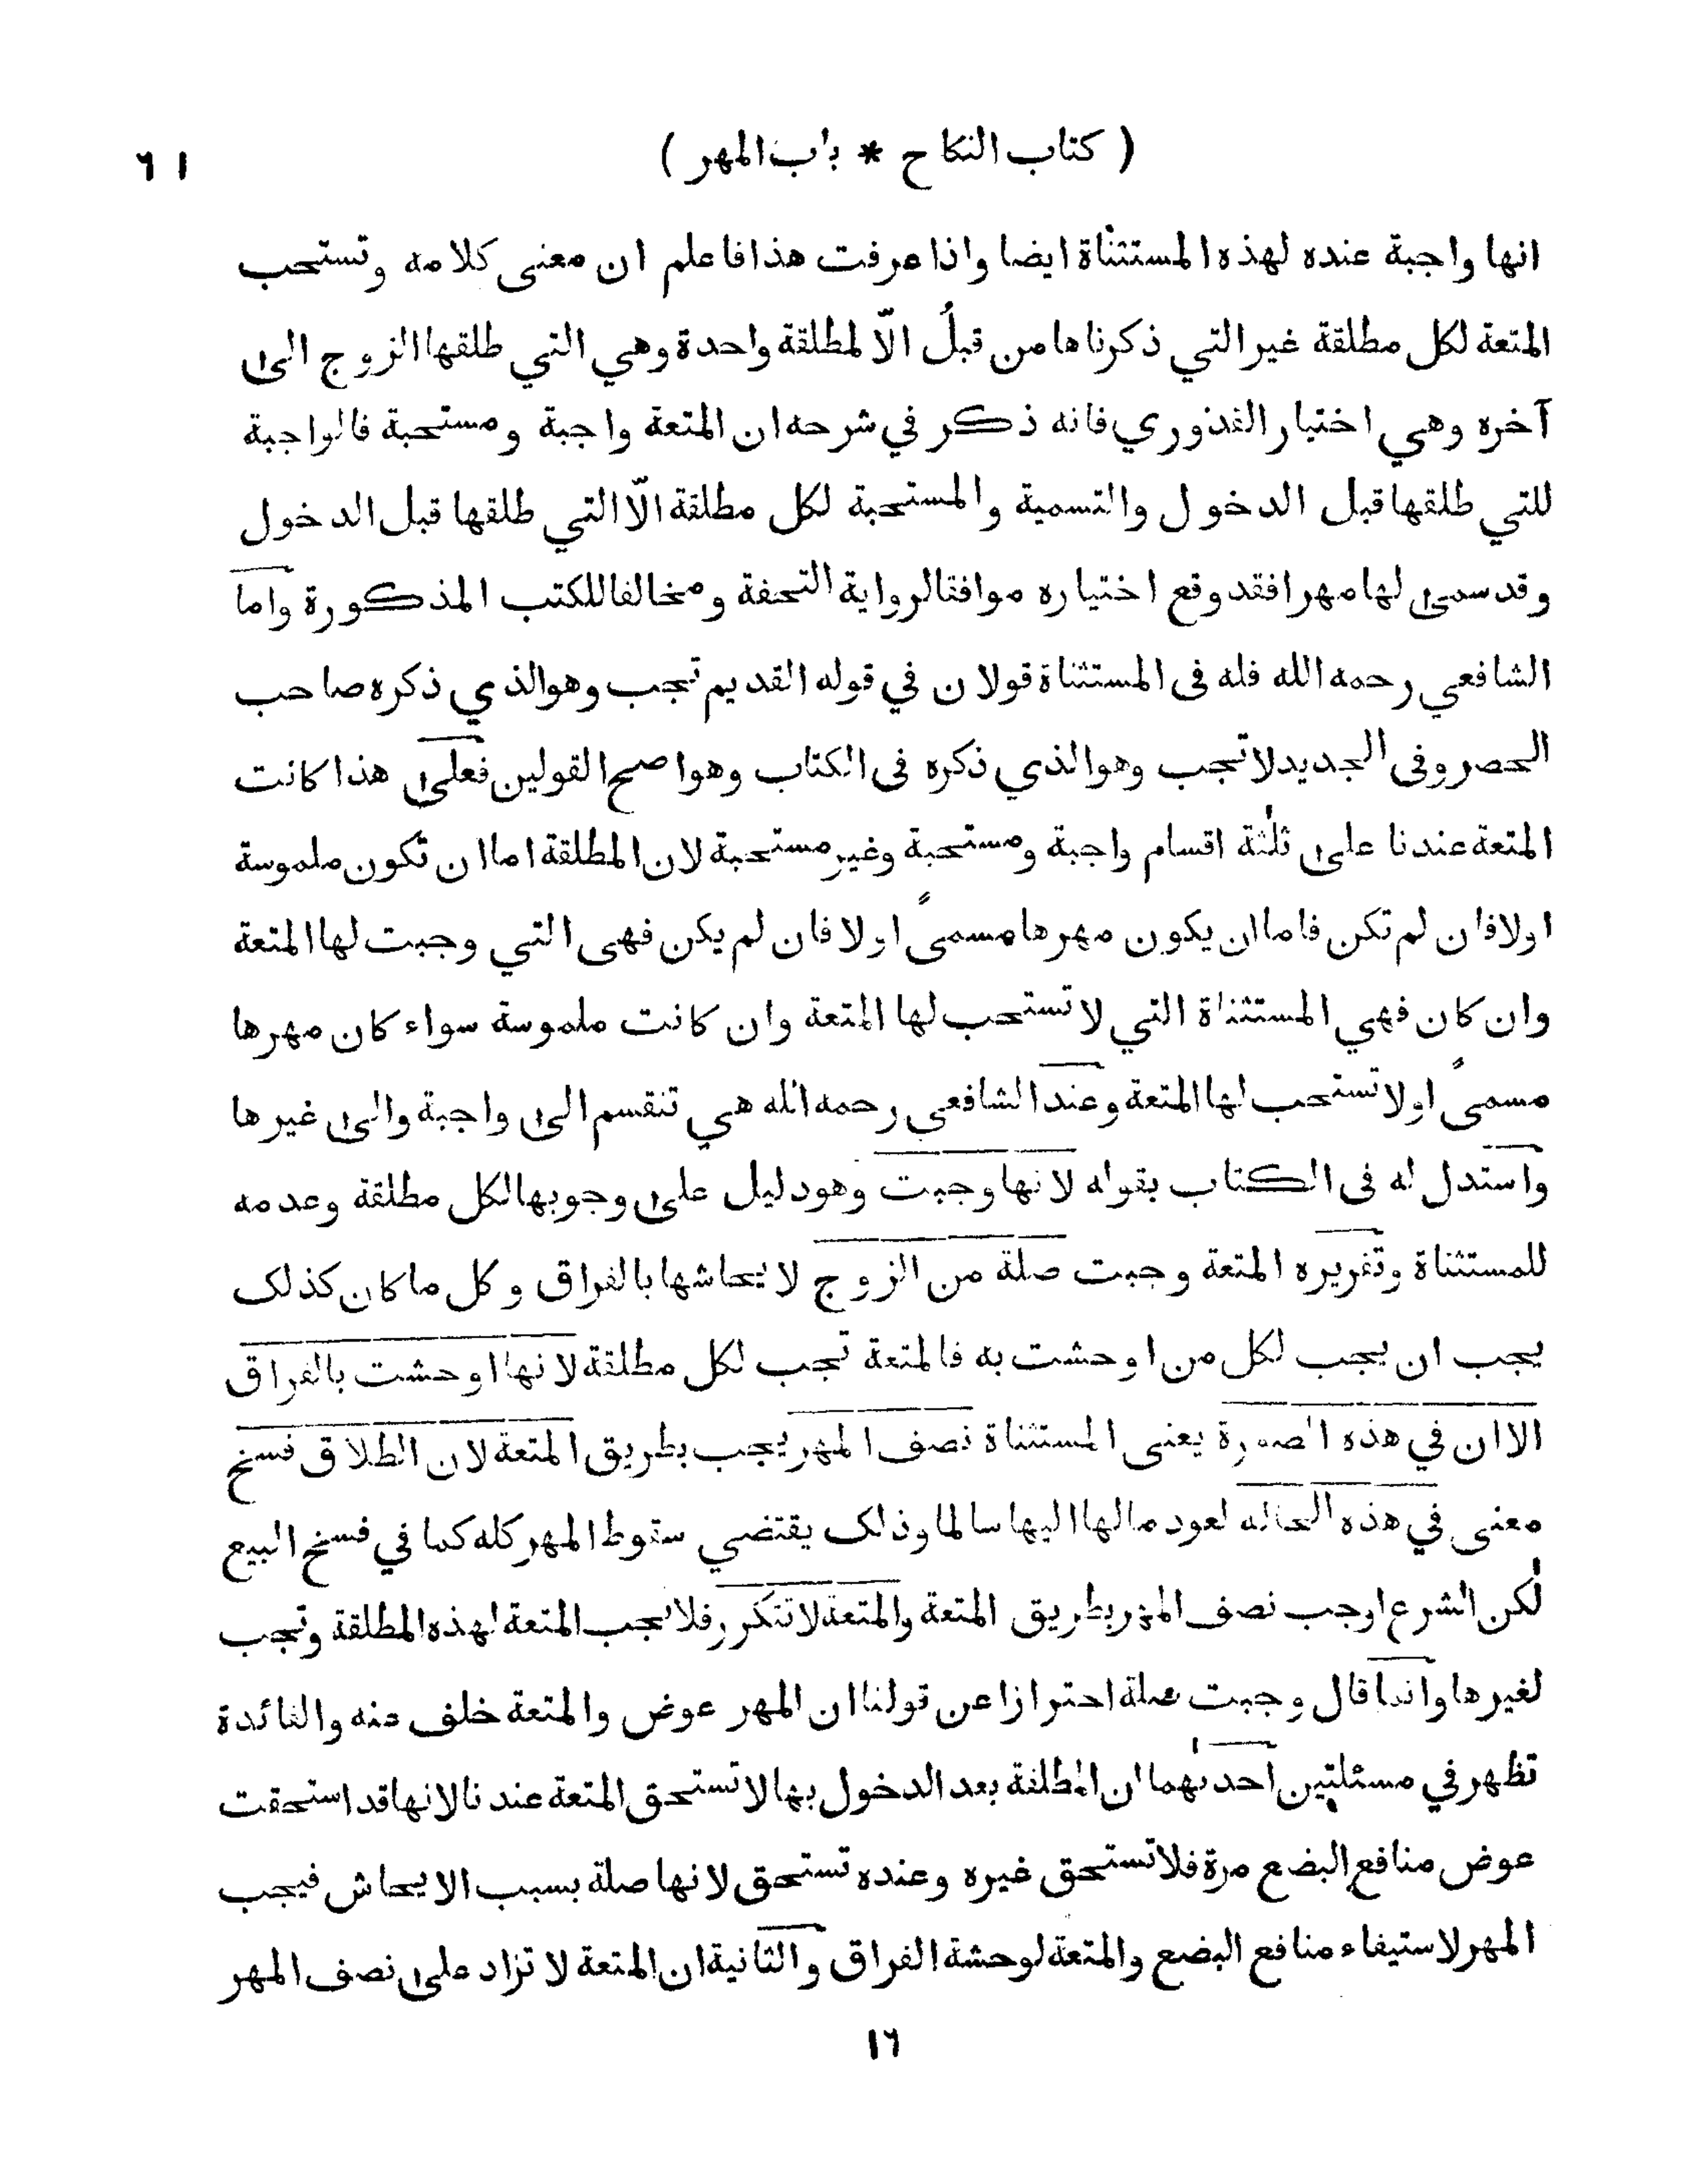 ( كتاب النكاح * باب المهر )
٦١
انها واجبة عنده لهذه المستثناة ايضا واذا عرفت هذا فاعلم ان معنى كلامه وتستحب
المتعة لكل مطلقة غير التي ذكرناها من قبلُ الّا لمطلقة واحدة وهي التي طلقها الزوج الى
آخره وهي اختيار القدوري فانه ذكر في شرحه ان المتعة واجبة ومستحبة فالواجبة
للتي طلقها قبل الدخول والتسمية والمستحبة لكل مطلقة الّا التي طلقها قبل الدخول
وقد سمى لها مهرا فقد وقع اختياره موافقا لرواية التحفة ومخالفا للكتب المذكورة واما
الشافعي رحمه الله فله فى المستثناة قولان في قوله القديم تجب وهو الذي ذكره صاحب
الحصر وفى الجديد لا تجب وهو الذي ذكره فى الكتاب وهو اصح القولين فعلى هذا كانت
المتعة عندنا على ثلثة اقسام واجبة ومستحبة وغير مستحبة لان المطلقة اما ان تكون ملموسة
اولا فان لم تكن فاما ان يكون مهرها مسمىً اولا فان لم يكن فهى التي وجبت لها المتعة
وان كان فهي المستثناة التي لا تستحب لها المتعة وان كانت ملموسة سواء كان مهرها
مسمىً اولا تستحب لها المتعة وعند الشافعي رحمه الله هي تنقسم الى واجبة والى غيرها
واستدل له فى الكتاب بقوله لانها وجبت وهو دليل على وجوبها لكل مطلقة وعدمه
للمستثناة وتقريره المتعة وجبت صلة من الزوج لايحاشها بالفراق وكل ما كان كذلك
يجب ان يجب لكل من اوحشت به فالمتعة تجب لكل مطلقة لانها اوحشت بالفراق
الا ان في هذه الصورة يعنى المستثناة نصف المهر يجب بطريق المتعة لان الطلاق فسخ
معنى في هذه الحاله لعود مالها اليها سالما وذلك يقتضي سقوط المهر كله كما في فسخ البيع
لكن الشرع اوجب نصف المهر بطريق المتعة والمتعة لا تتكرر فلا يجب المتعة لهذه المطلقة وتجب
لغيرها وانما قال وجبت صلة احترازا عن قولنا ان المهر عوض والمتعة خلف عنه والفائدة
تظهر في مسئلتين احدىهما ان المطلقة بعد الدخول بها لا تستحق المتعة عندنا لانها قد استحقت
عوض منافع البضع مرة فلا تستحق غيره وعنده تستحق لانها صلة بسبب الايحاش فيجب
المهر لاستيفاء منافع البضع والمتعة لوحشة الفراق والثانية ان المتعة لا تزاد على نصف المهر
١٦